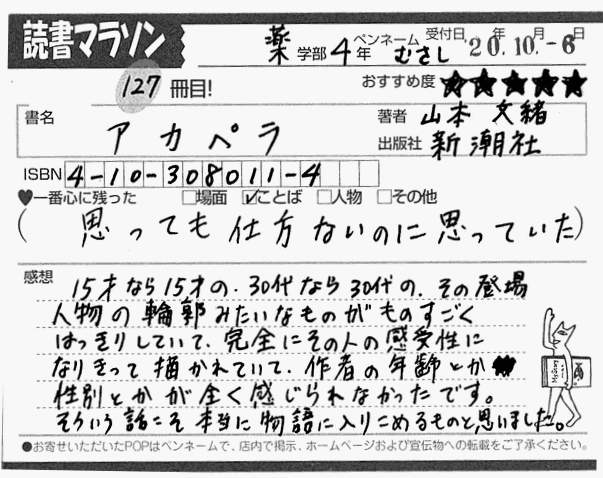 読書マラソン
薬 学部 4 年 ペンネーム むさし 受付日 20.年10.月-6日
127 冊目! おすすめ度 ★★★★★
書名 アカペラ
著者 山本 文緒
出版社 新潮社
ISBN 4-10-308011-4
♥一番心に残った □場面 ☑ことば □人物 □その他
(思っても仕方ないのに思っていた)
感想
15才なら15才の、30代なら30代の、その登場
人物の輪郭みたいなものがものすごく
はっきりしていて、完全にその人の感受性に
なりきって描かれていて、作者の年齢とか
性別とかが全く感じられなかったです。
そういう話こそ本当に物語に入りこめるものと思いました。
●お寄せいただいたPOPはペンネームで、店内で掲示、ホームページおよび宣伝物への転載をご了承ください。